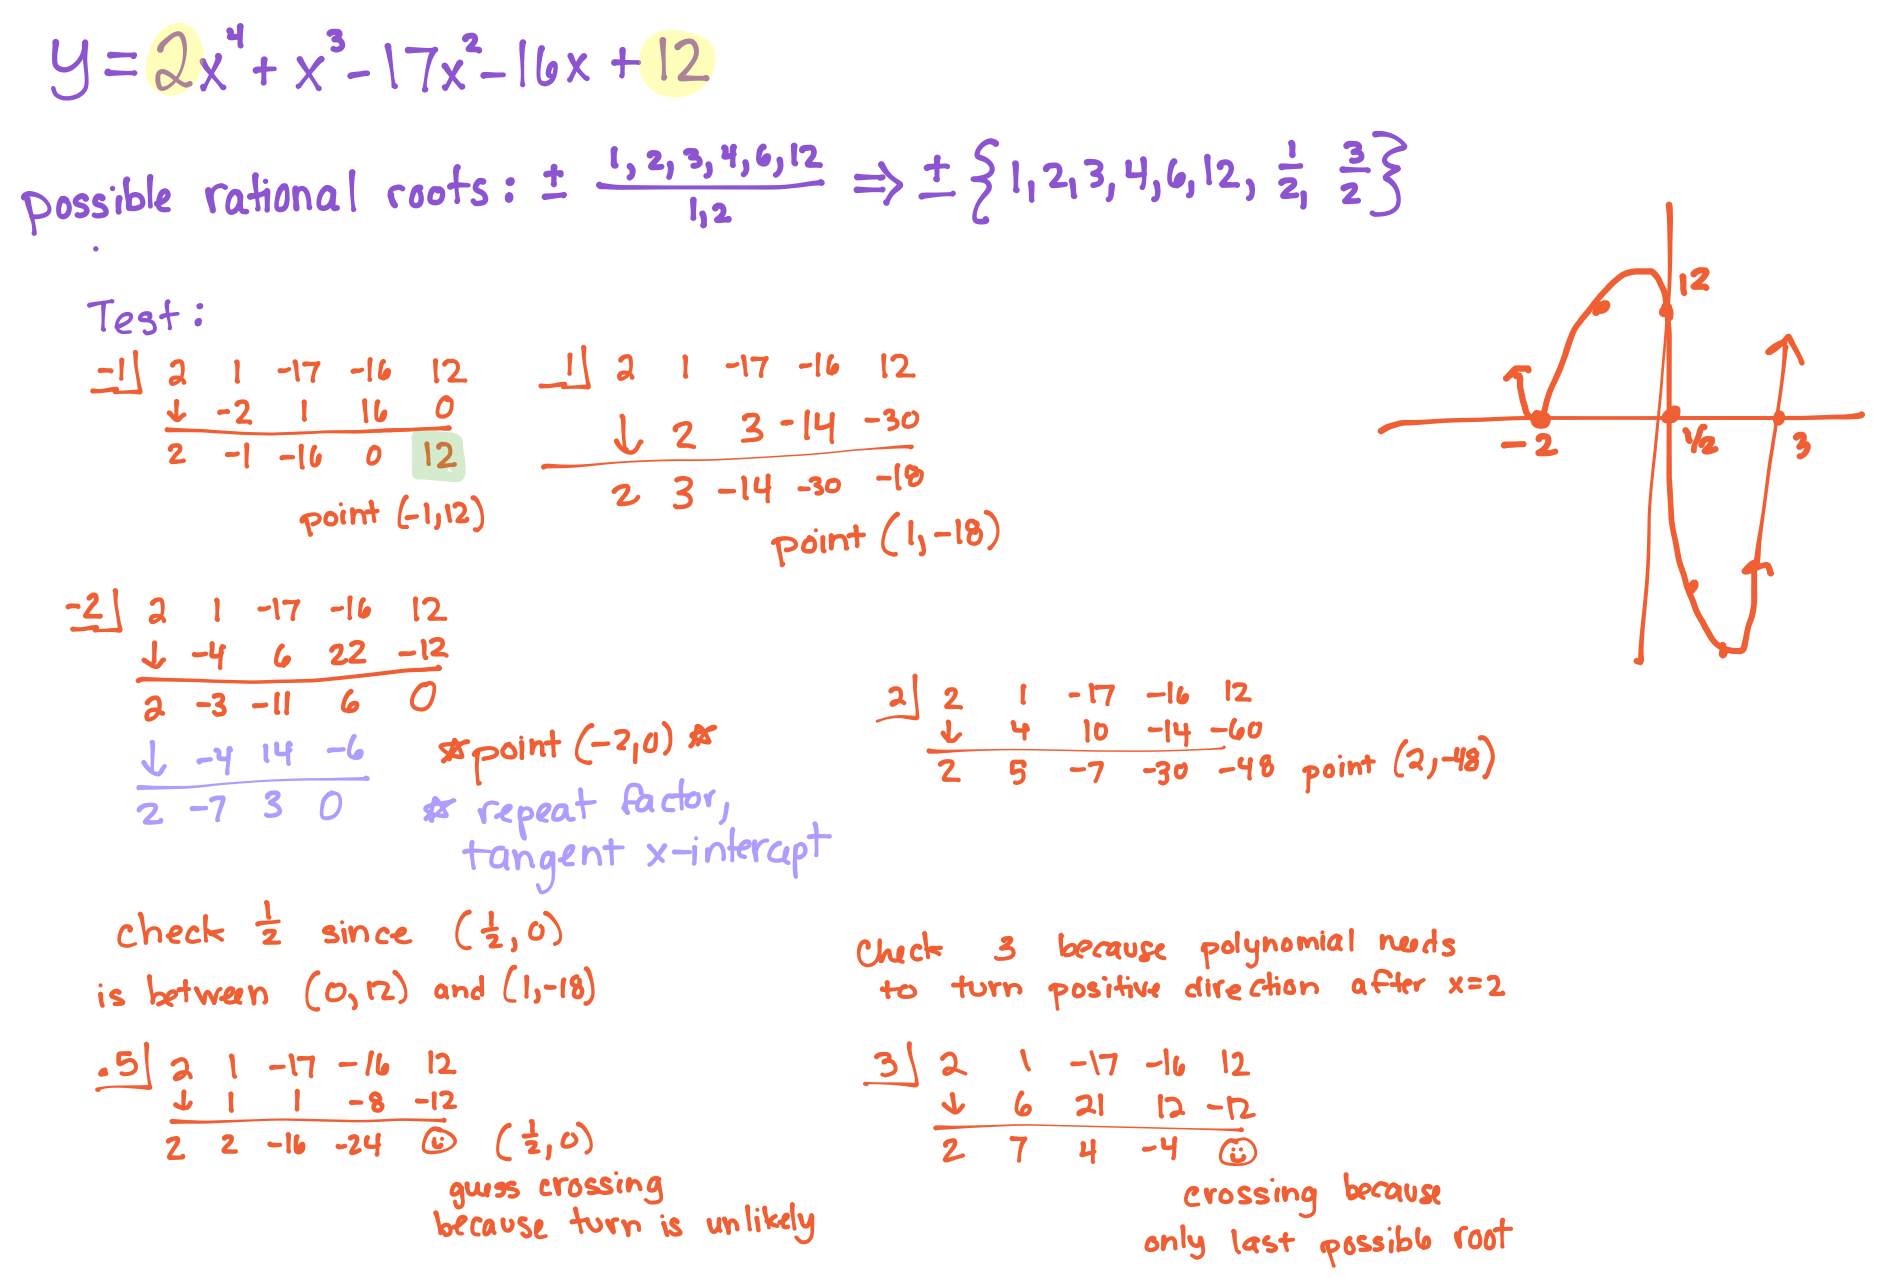 y = 2x⁴ + x³ - 17x² - 16x + 12
possible rational roots: ± 1, 2, 3, 4, 6, 12 / 1, 2 ⇒ ± {1, 2, 3, 4, 6, 12, 1/2, 3/2}
Test:
-1| 2 1 -17 -16 12
↓ -2 1 16 0
2 -1 -16 0 12
point (-1, 12)
1| 2 1 -17 -16 12
↓ 2 3 -14 -30
2 3 -14 -30 -18
point (1, -18)
12
-2 1/2 3
-2| 2 1 -17 -16 12
↓ -4 6 22 -12
2 -3 -11 6 0
↓ -4 14 -6
2 -7 3 0
☆ point (-2, 0) ☆
☆ repeat factor,
tangent x-intercept
2| 2 1 -17 -16 12
↓ 4 10 -14 -60
2 5 -7 -30 -48
point (2, -48)
check 1/2 since (1/2, 0)
is between (0, 12) and (1, -18)
.5| 2 1 -17 -16 12
↓ 1 1 -8 -12
2 2 -16 -24 ☺
(1/2, 0)
guess crossing
because turn is unlikely
Check 3 because polynomial needs
to turn positive direction after x=2
3| 2 1 -17 -16 12
↓ 6 21 12 -12
2 7 4 -4 ☺
crossing because
only last possible root